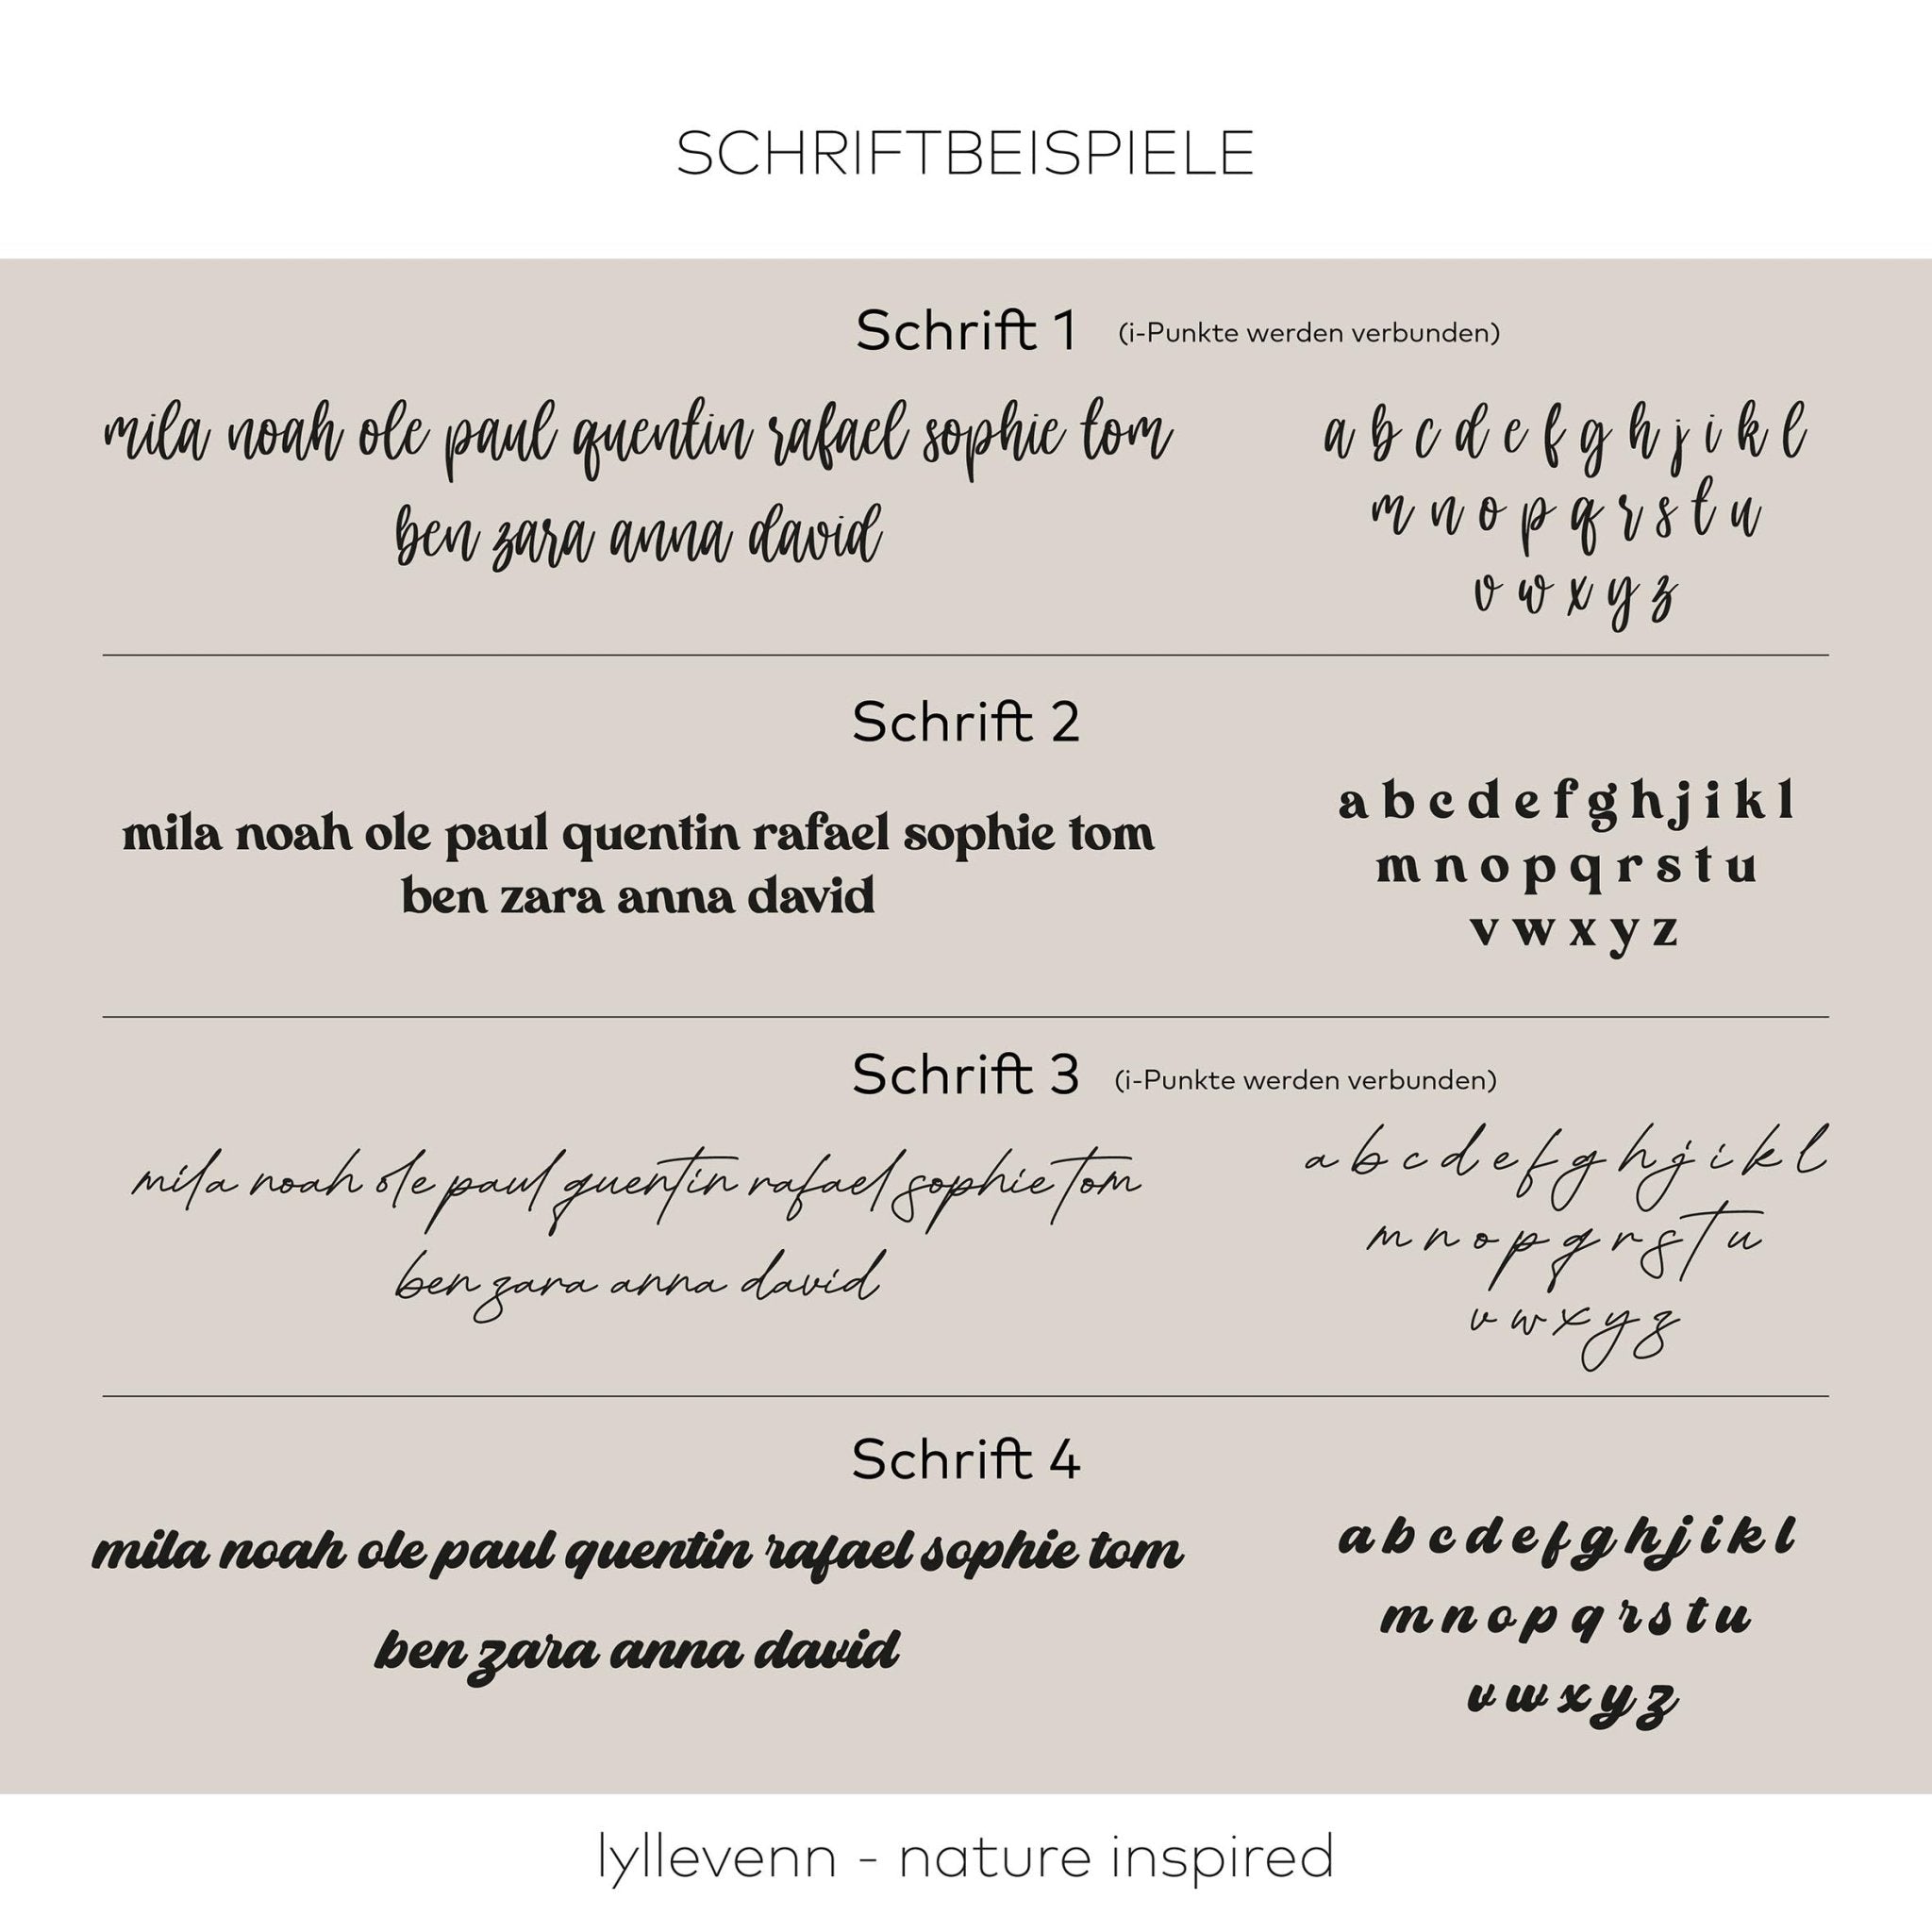 SCHRIFTBEISPIELE
Schrift 1 (i-Punkte werden verbunden)
mila noah ole paul quentin rafael sophie tom
ben zara anna david
a b c d e f g h j i k l
m n o p q r s t u
v w x y z
Schrift 2
mila noah ole paul quentin rafael sophie tom
ben zara anna david
a b c d e f g h j i k l
m n o p q r s t u
v w x y z
Schrift 3 (i-Punkte werden verbunden)
mila noah ole paul quentin rafael sophie tom
ben zara anna david
a b c d e f g h j i k l
m n o p q r s t u
v w x y z
Schrift 4
mila noah ole paul quentin rafael sophie tom
ben zara anna david
a b c d e f g h j i k l
m n o p q r s t u
v w x y z
lyllevenn - nature inspired